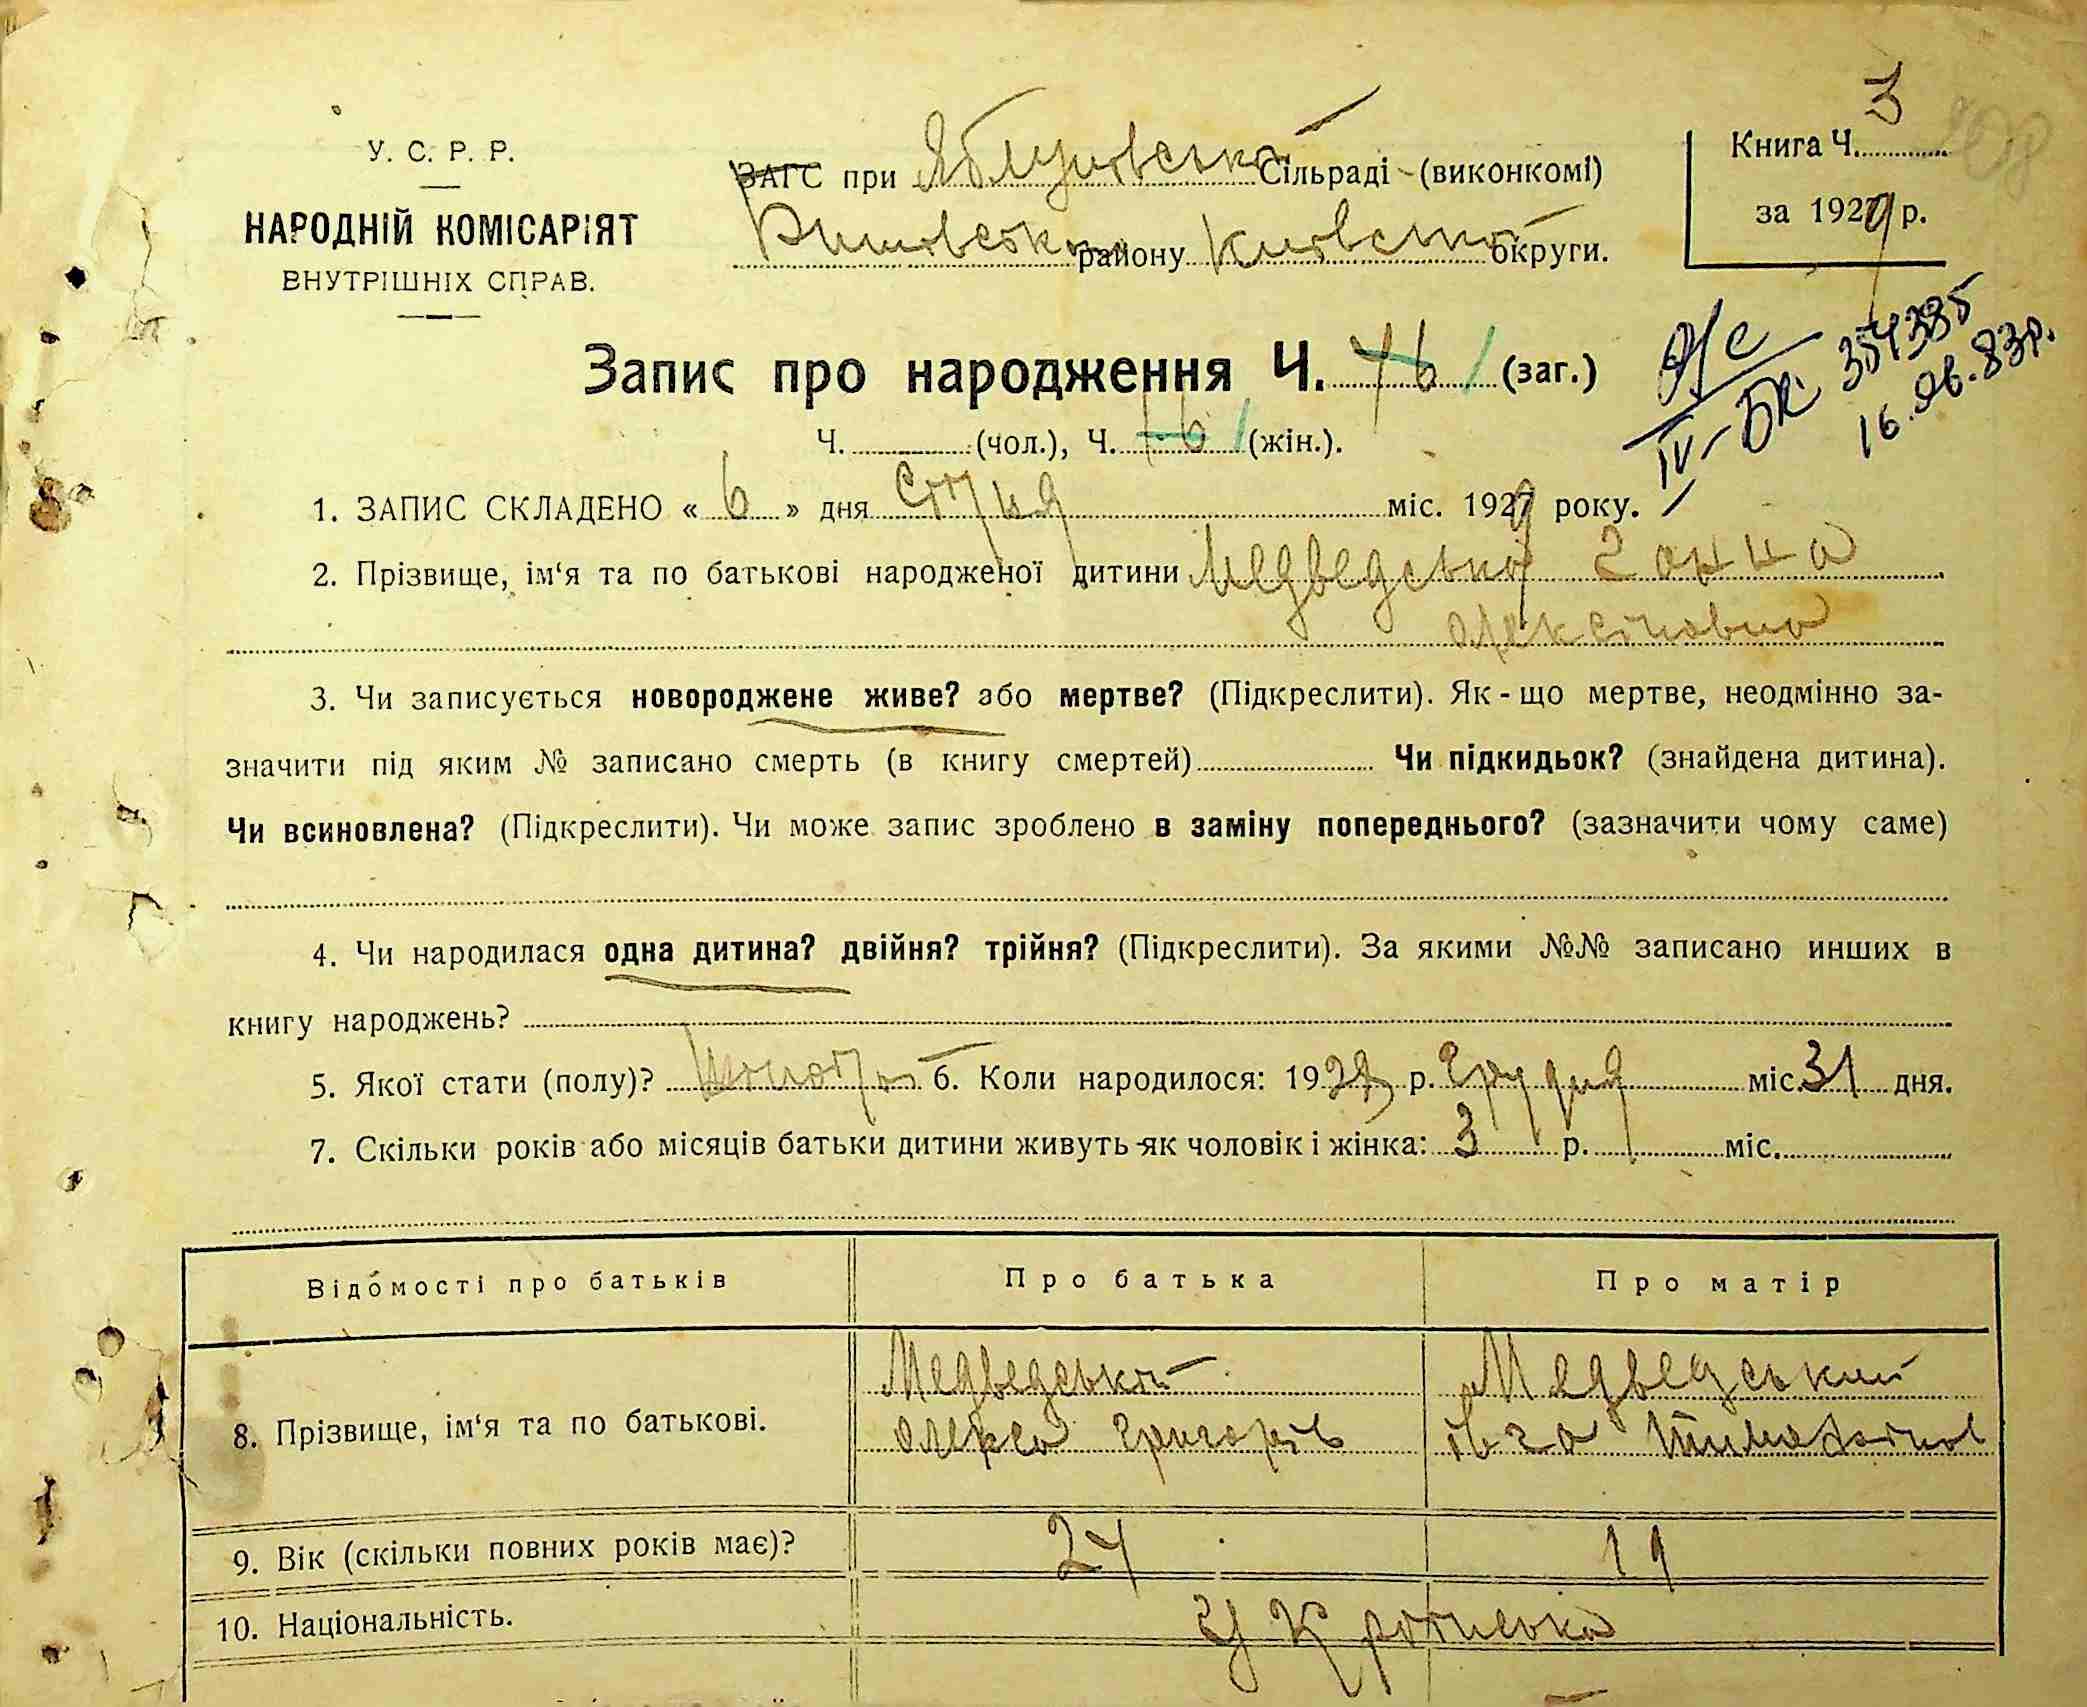 У. С. Р. Р.
НАРОДНІЙ КОМІСАРІЯТ
ВНУТРІШНІХ СПРАВ.
ЗАГС при Яблунівські Сільраді (виконкомі)
району Київської округи.
Книга Ч. 3
за 1929 р.
Запис про народження Ч. (заг.)
Ч. (чол.), Ч. (жін.).
IV-БК 354385
16. 83р.
1. ЗАПИС СКЛАДЕНО « 6 » дня січня міс. 1929 року.
2. Прізвище, ім‘я та по батькові народженої дитини Медведська Ганна
Олексіповна
3. Чи записується новороджене живе? або мертве? (Підкреслити). Як-що мертве, неодмінно за-
значити під яким № записано смерть (в книгу смертей) Чи підкидьок? (знайдена дитина).
Чи всиновлена? (Підкреслити). Чи може запис зроблено в заміну попереднього? (зазначити чому саме)
4. Чи народилася одна дитина? двійня? трійня? (Підкреслити). За якими №№ записано инших в
книгу народжень?
5. Якої стати (полу)? 6. Коли народилося: 1928 р. Грудня міс. 31 дня.
7. Скільки років або місяців батьки дитини живуть як чоловік і жінка: 3 р. міс.
Відомості про батьків Про батька Про матір
8. Прізвище, ім‘я та по батькові.
Медведський Медведський
Олекса Григорів Івга
9. Вік (скільки повних років має)? 24 19
10. Національність. Українська